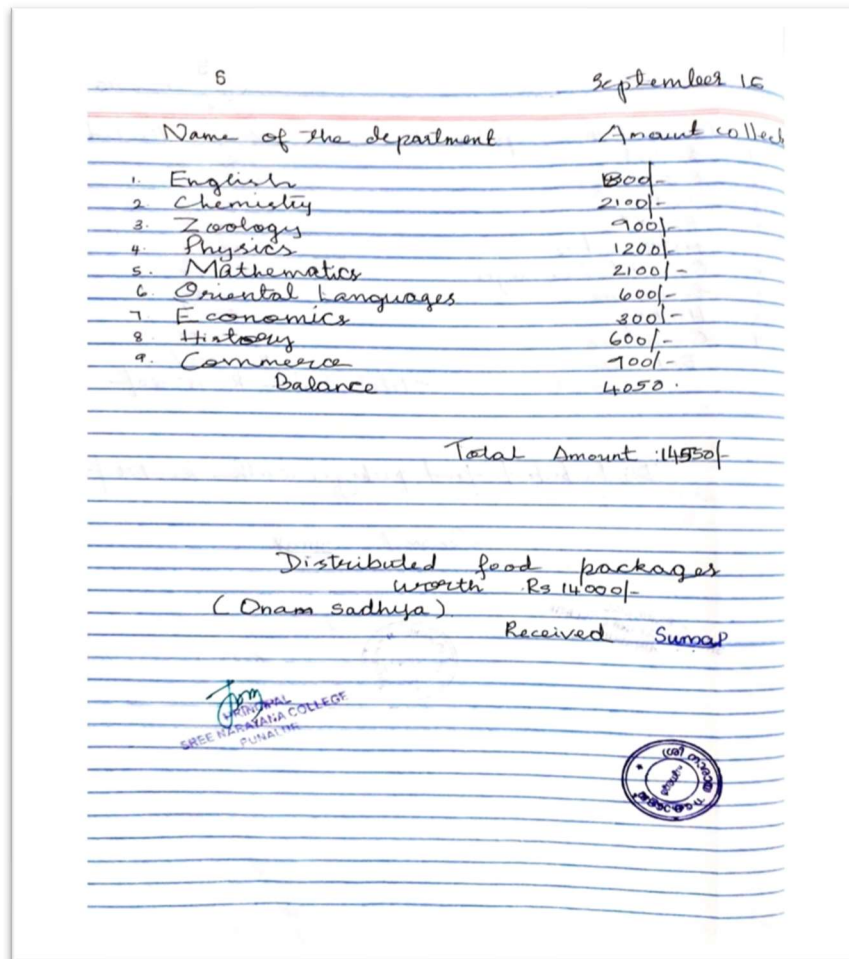 5 September 15
Name of the department Amount collect
1. English 1800/-
2 Chemistry 2100/-
3. Zoology 900/-
4. Physics 1200/-
5. Mathematics 2100/-
6. Oriental Languages 600/-
7 Economics 300/-
8. History 600/-
9. Commerce 900/-
Balance 4050.
Total Amount :14550/-
Distributed food packages
worth Rs 14000/-
(Onam sadhya)
Received Sumap
PRINCIPAL
SREE NARAYANA COLLEGE
PUNALUR